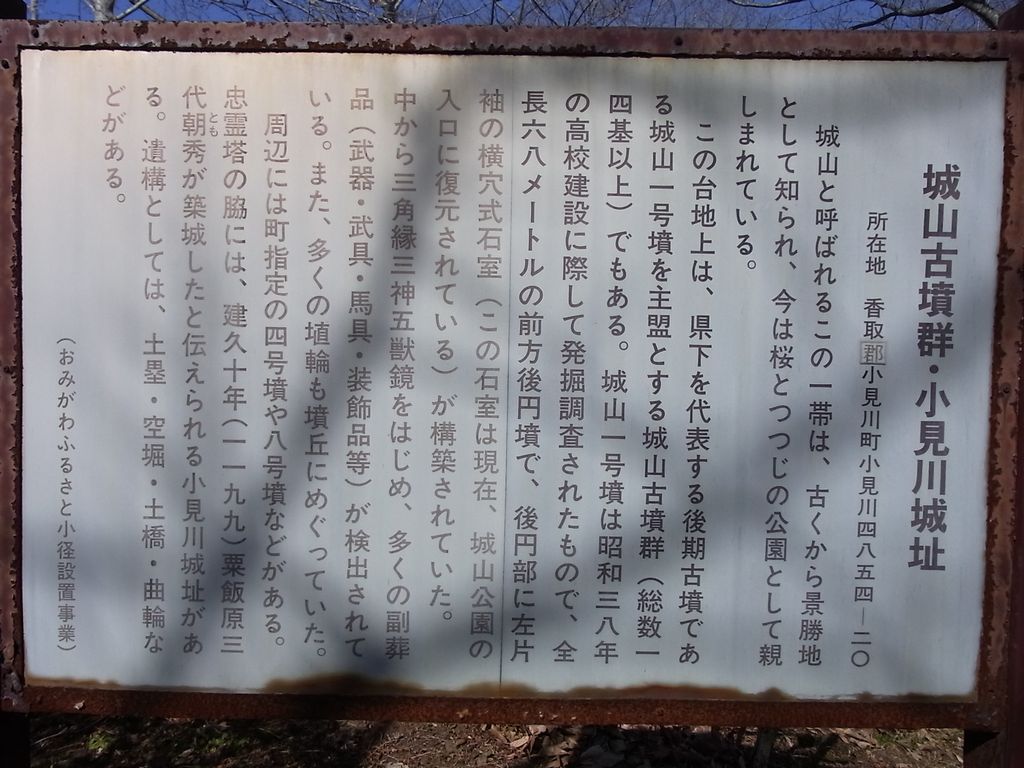 城山古墳群・小見川城址
所在地　香取郡小見川町小見川四八五四―二〇
城山と呼ばれるこの一帯は、古くから景勝地
として知られ、今は桜とつつじの公園として親
しまれている。
この台地上は、県下を代表する後期古墳であ
る城山一号墳を主盟とする城山古墳群（総数一
四基以上）でもある。城山一号墳は昭和三八年
の高校建設に際して発掘調査されたもので、全
長六八メートルの前方後円墳で、後円部に左片
袖の横穴式石室（この石室は現在、城山公園の
入口に復元されている）が構築されていた。
中から三角縁三神五獣鏡をはじめ、多くの副葬
品（武器・武具・馬具・装飾品等）が検出されて
いる。また、多くの埴輪も墳丘にめぐっていた。
周辺には町指定の四号墳や八号墳などがある。
忠霊塔の脇には、建久十年（一一九九）粟飯原三
代朝とも秀が築城したと伝えられる小見川城址があ
る。遺構としては、土塁・空堀・土橋・曲輪な
どがある。
（おみがわふるさと小径設置事業）